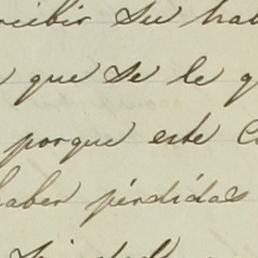 recibir su hab
que se le g
porque este C
haber pérdidas